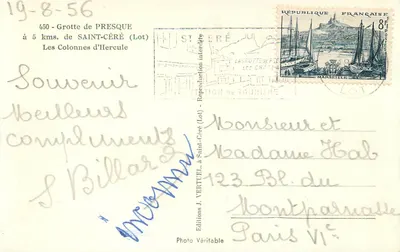 19-8-56
450 - Grotte de PRESQUE
à 5 kms. de SAINT-CÉRÉ (Lot)
Les Colonnes d'Hercule
Souvenir
Meilleurs
compliments
S Billard
inconnu
Editions J. VERTUEL, à Saint-Céré (Lot) - Reproduction interdite
Photo Véritable
ST CÉRÉ
RÉPUBLIQUE FRANÇAISE
8F
MARSEILLE
Monsieur et
Madame Hab
123 Bl. du
Montparnasse
Paris VIe